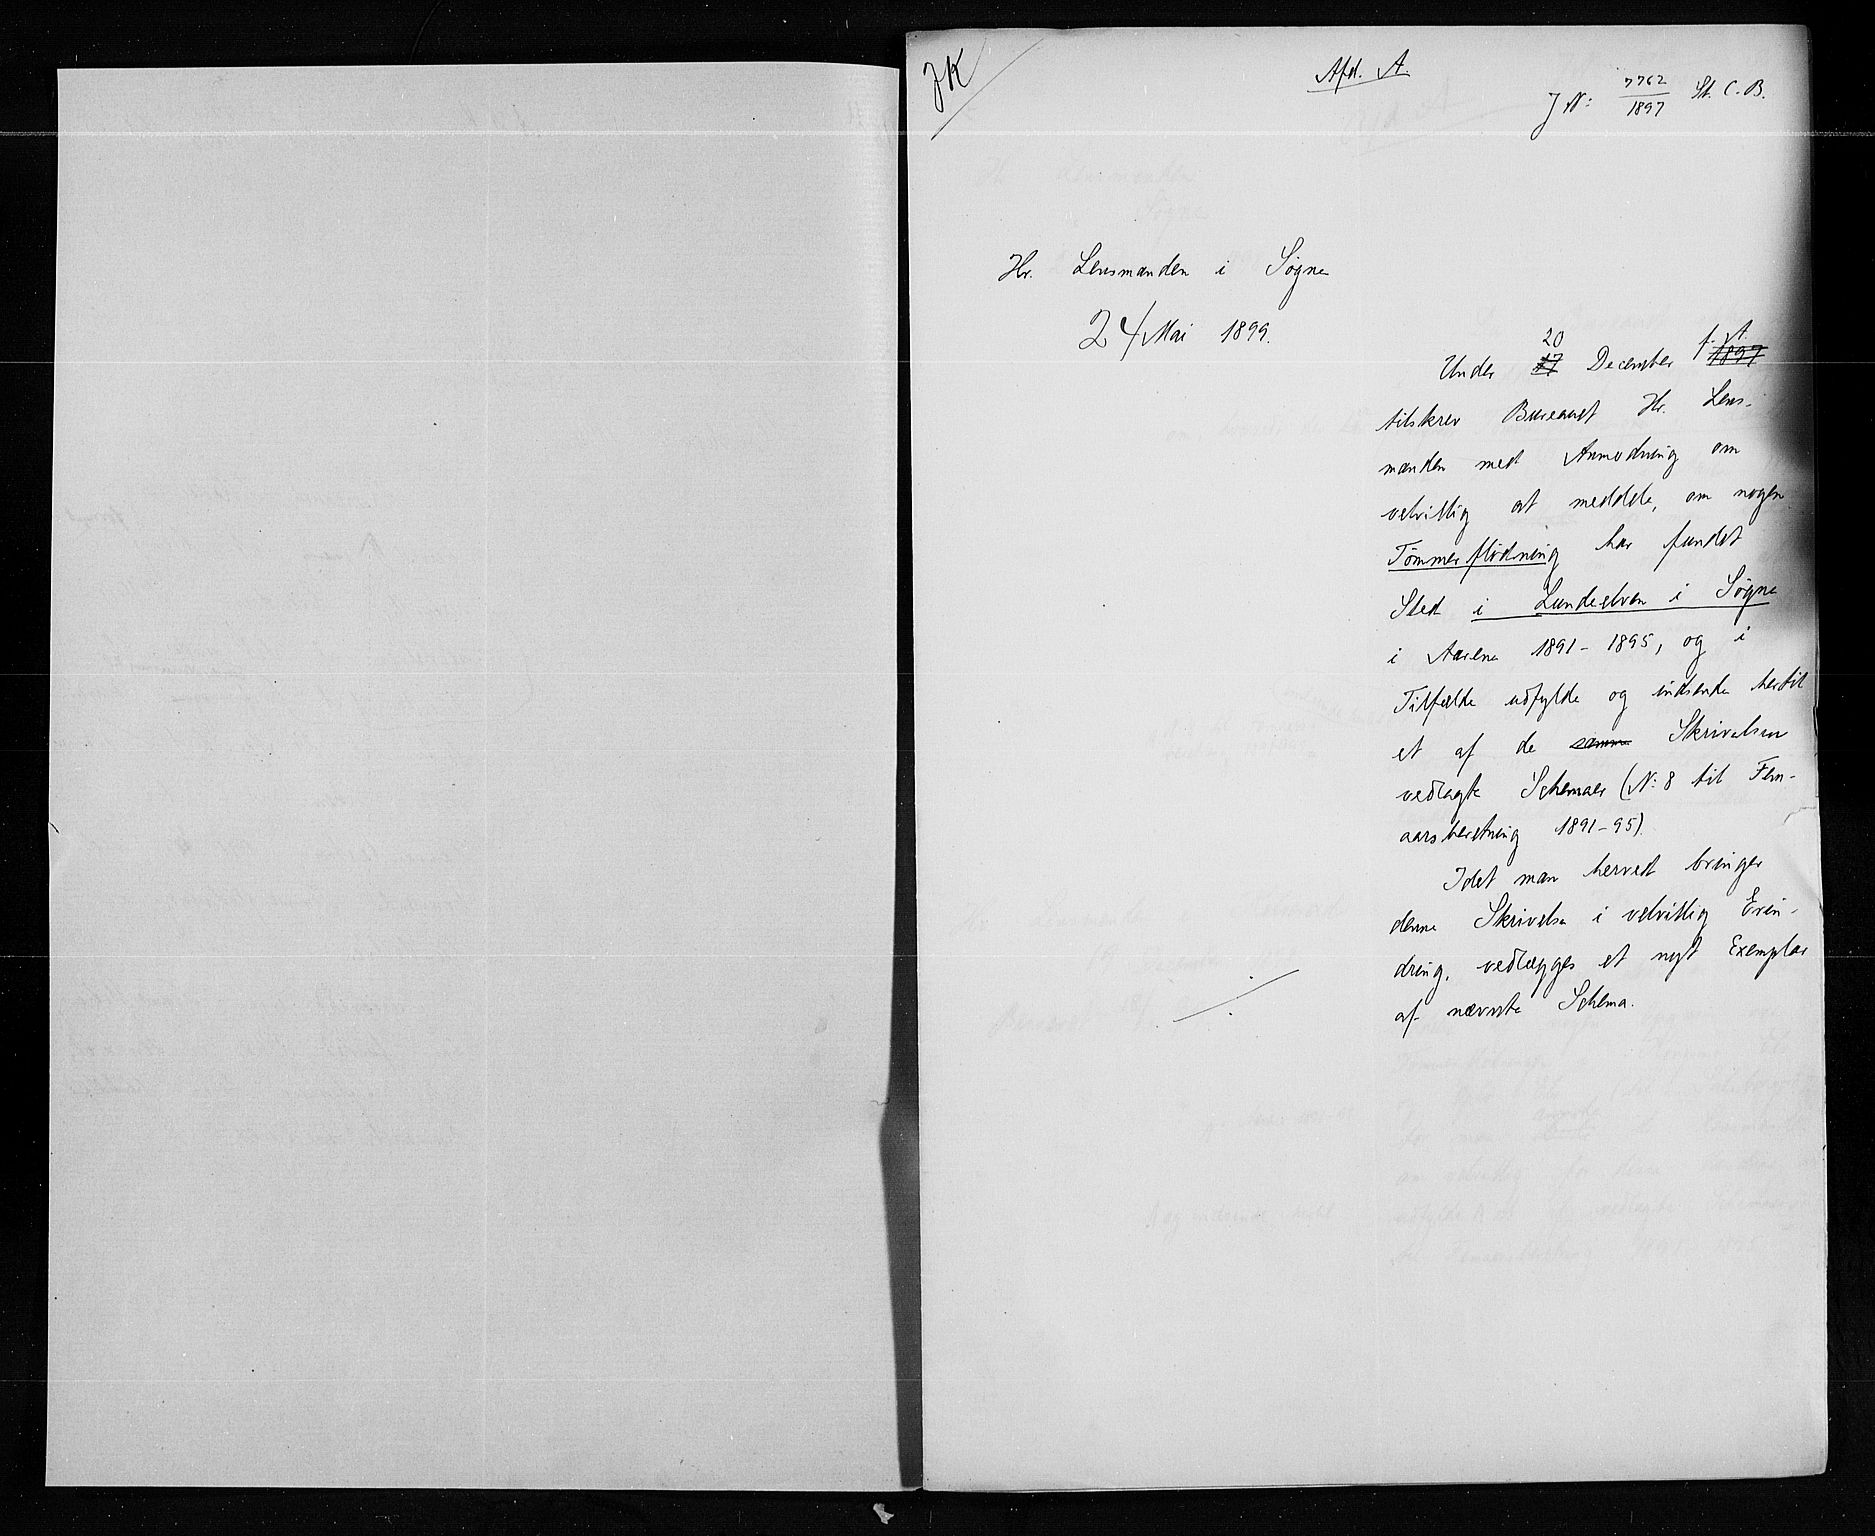 JK
Afd. A.
J№: 7762/1897 St. C. B.
Hr. Lensmanden i Søgne
24/Mai 1899.
20 f. A.
Under 17 December 1897
tilskrev Bureauet Hr. Lens-
manden med Anmodning om
velvillig at meddele, om nogen
Tømmerflødning har fundet
Sted i Lundeelven i Søgne
i Aarene 1891-1895, og i
Tilfælde udfylde og indsende hertil
et af de samme Skrivelsen
vedlagte Schemaer (№: 8 til Fem-
aarsberetning 1891-95).
Idet man herved bringer
denne Skrivelse i velvillig Erin-
dring, vedlægges et nyt Exemplar
af nævnte Schema.